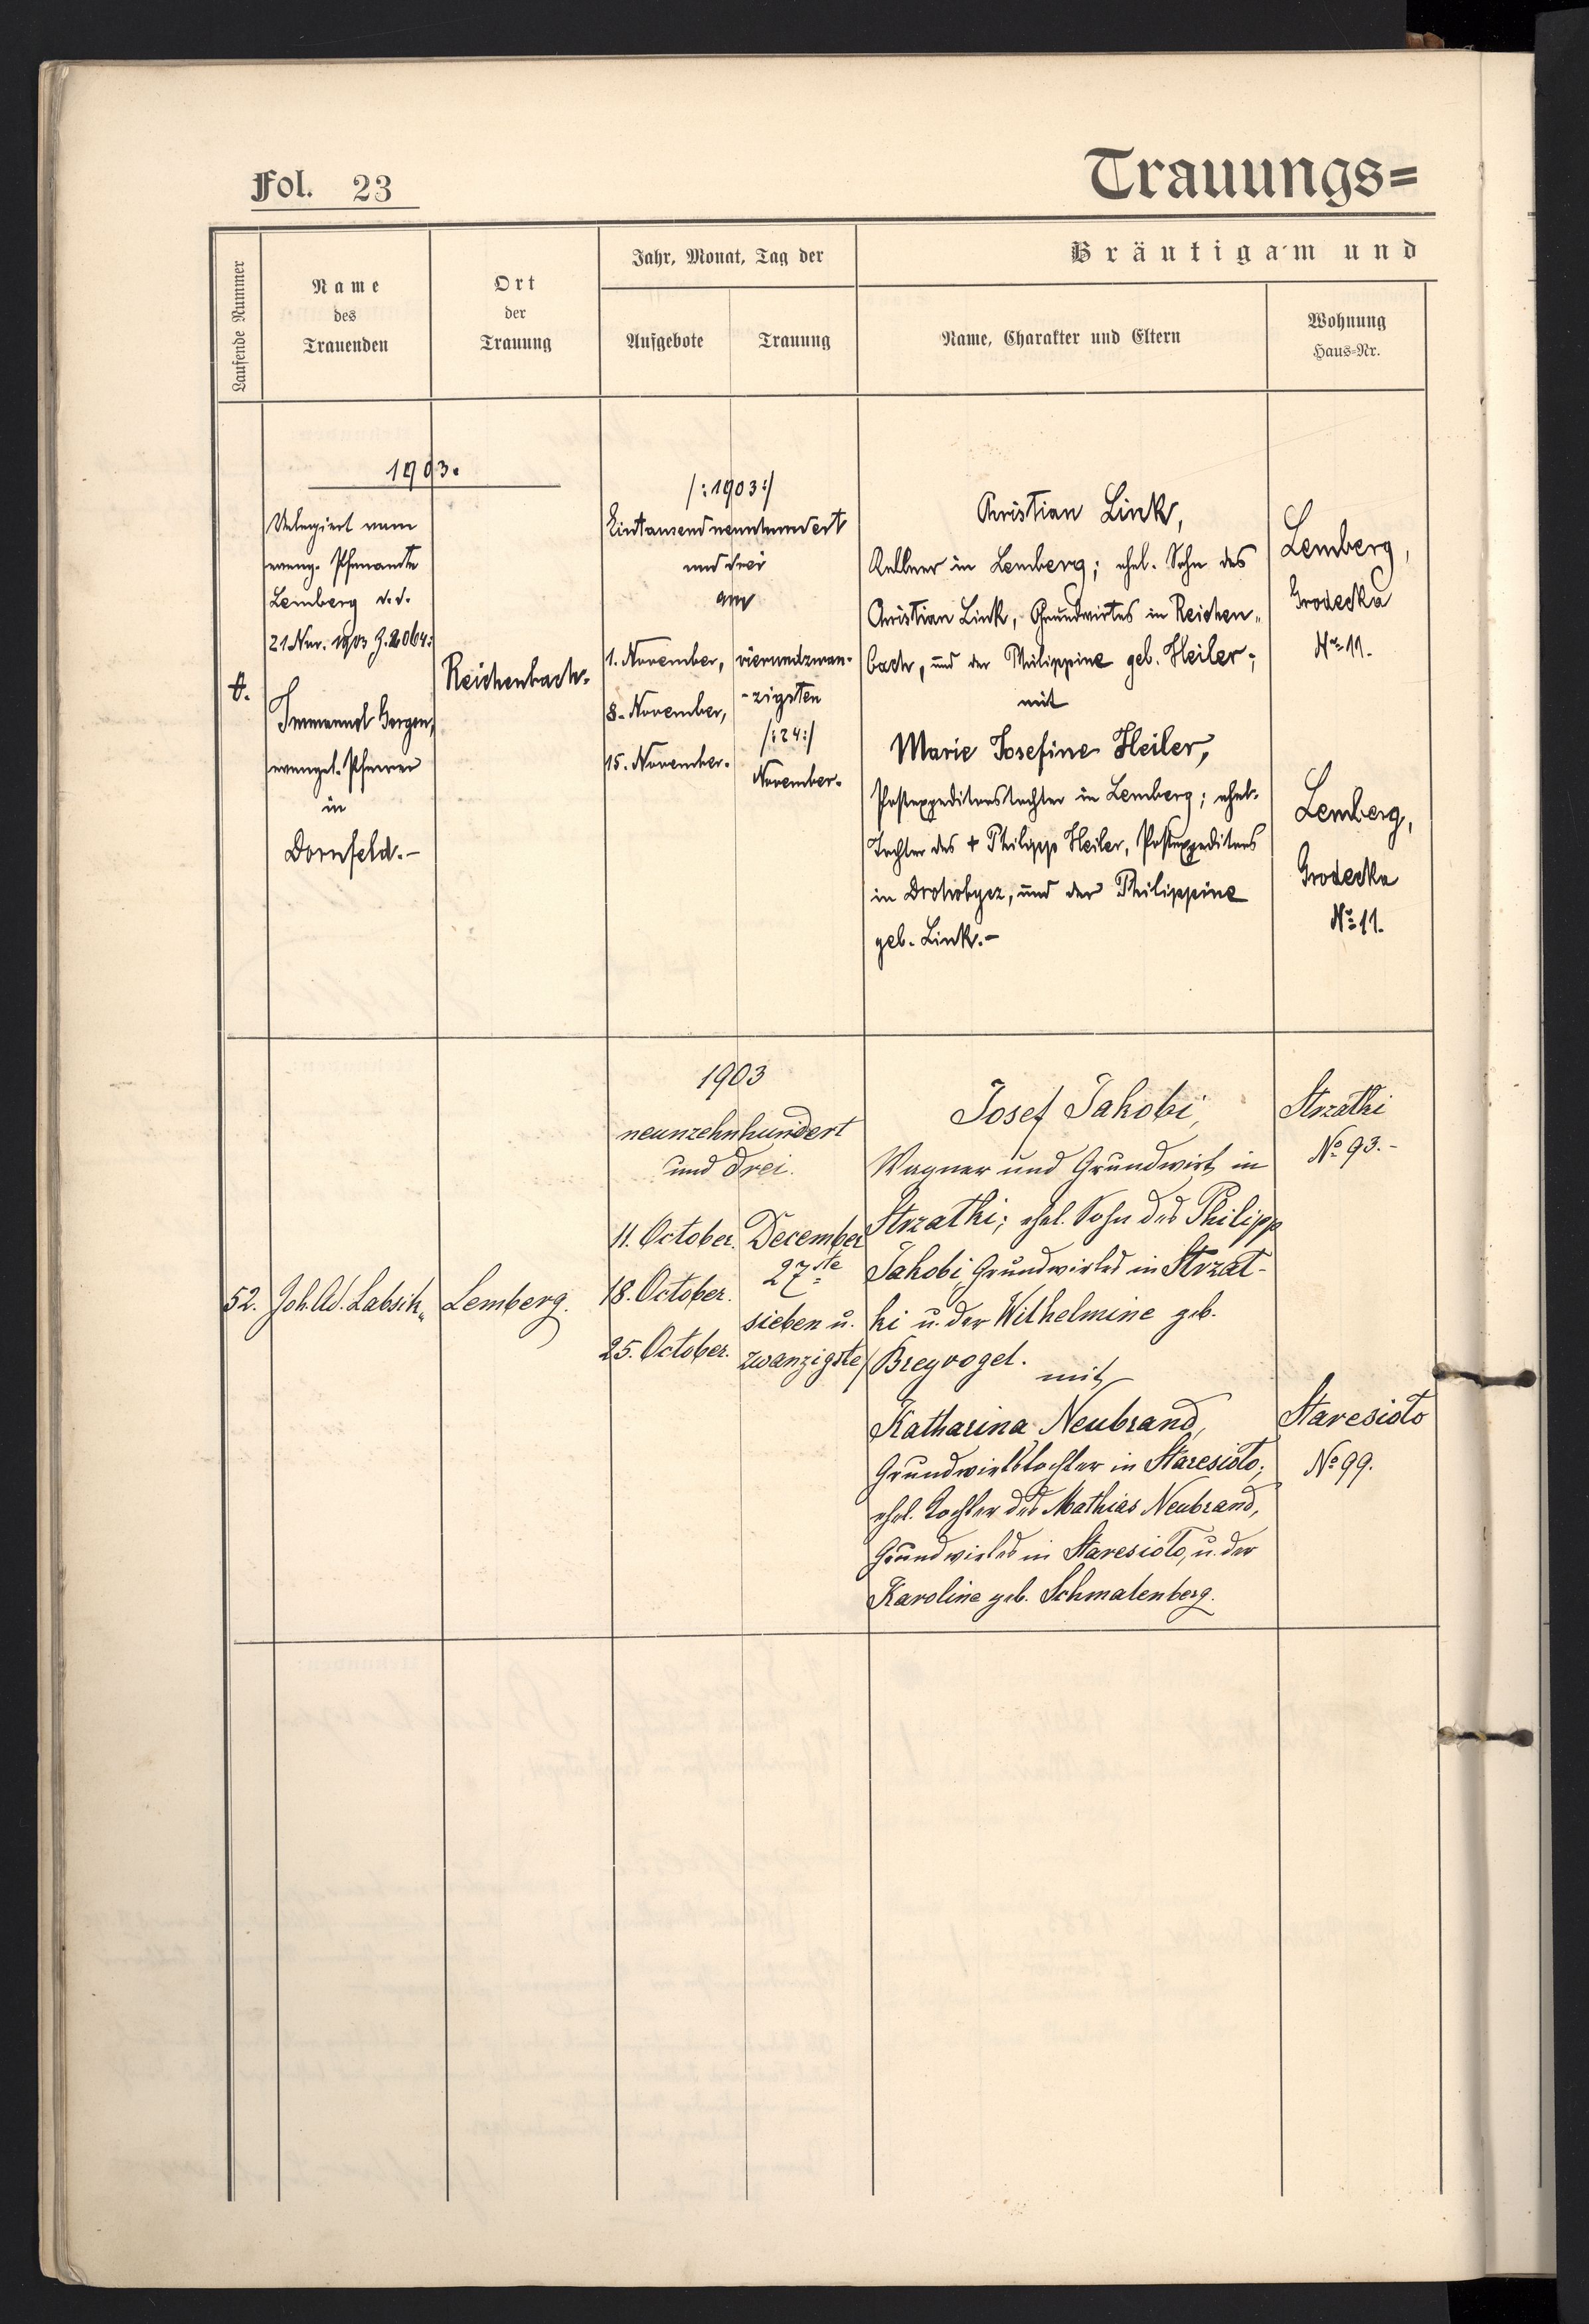 Fol. 23
Trauungs=
Laufende Nummer
Name
des
Trauenden
Ort
der
Trauung
Jahr, Monat, Tag der
Aufgebote
Trauung
Bräutigam und
Name, Charakter und Eltern
Wohnung
Haus-Nr.
1903.
Delegiert vom
evang. Pfarramte
Lemberg d. d.
21 Nov. 1903 Z. 2064:
Immanuel Gorgon,
evangel. Pfarrer
in
Dornfeld.-
Reichenbach.
/:1903:/
Eintausendneunhundert
und drei
am
1. November,
8. November,
15. November.
vierundzwan-
-zigsten
/:24:/
November.
Christian Link,
Kellner in Lemberg; ehel. Sohn des
Christian Link, Grundwirtes in Reichen„
bach, und der Philippine geb. Heiler;
mit
Marie Josefine Heiler,
Postexpeditorstochter in Lemberg; ehel.
Tochter des + Philipp Heiler, Postexpeditors
in Drohobycz, und der Philippine
geb. Link.-
Lemberg,
Grodecka
No 11.
Lemberg,
Grodecka
No 11.
52.
Joh. Ad. Labsik„
Lemberg.
1903
neunzehnhundert
und drei.
11. October.
18. October.
25. October.
December
27te
sieben u.
zwanzigste/
Josef Jakobi,
Wagner und Grundwirt in
Strzałki; ehel. Sohn des Philipp
Jakobi, Grundwirtes in Strzał-
ki u. der Wilhelmine geb.
Breyvogel.
mit
Katharina Neubrand,
Grundwirtstochter in Staresioło;
ehel. Tochter des Mathias Neubrand,
Grundwirtes in Staresioło, u. der
Karoline geb. Schmalenberg.
Strzałki
No 93.-
Staresioło
No 99.